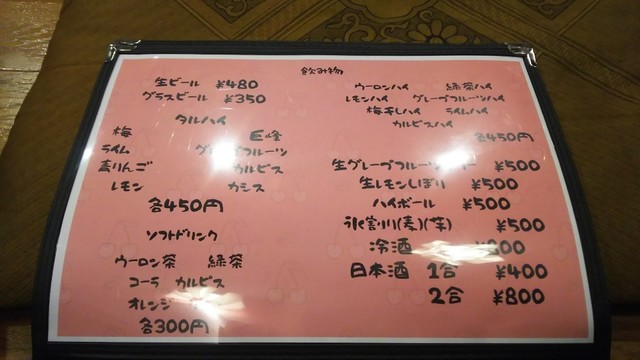 飲み物
生ビール ¥480
グラスビール ¥350
タルハイ
梅 巨峰
ライム グレープフルーツ
青りんご カルピス
レモン カシス
各450円
ソフトドリンク
ウーロン茶 緑茶
コーラ カルピス
オレンジ
各300円
ウーロンハイ 緑茶ハイ
レモンハイ グレープフルーツハイ
梅干しハイ ライムハイ
カルピスハイ
各450円
生グレープフルーツ ¥500
生レモンしぼり ¥500
ハイボール ¥500
氷割り(麦)(芋) ¥500
冷酒
日本酒 1合 ¥400
2合 ¥800